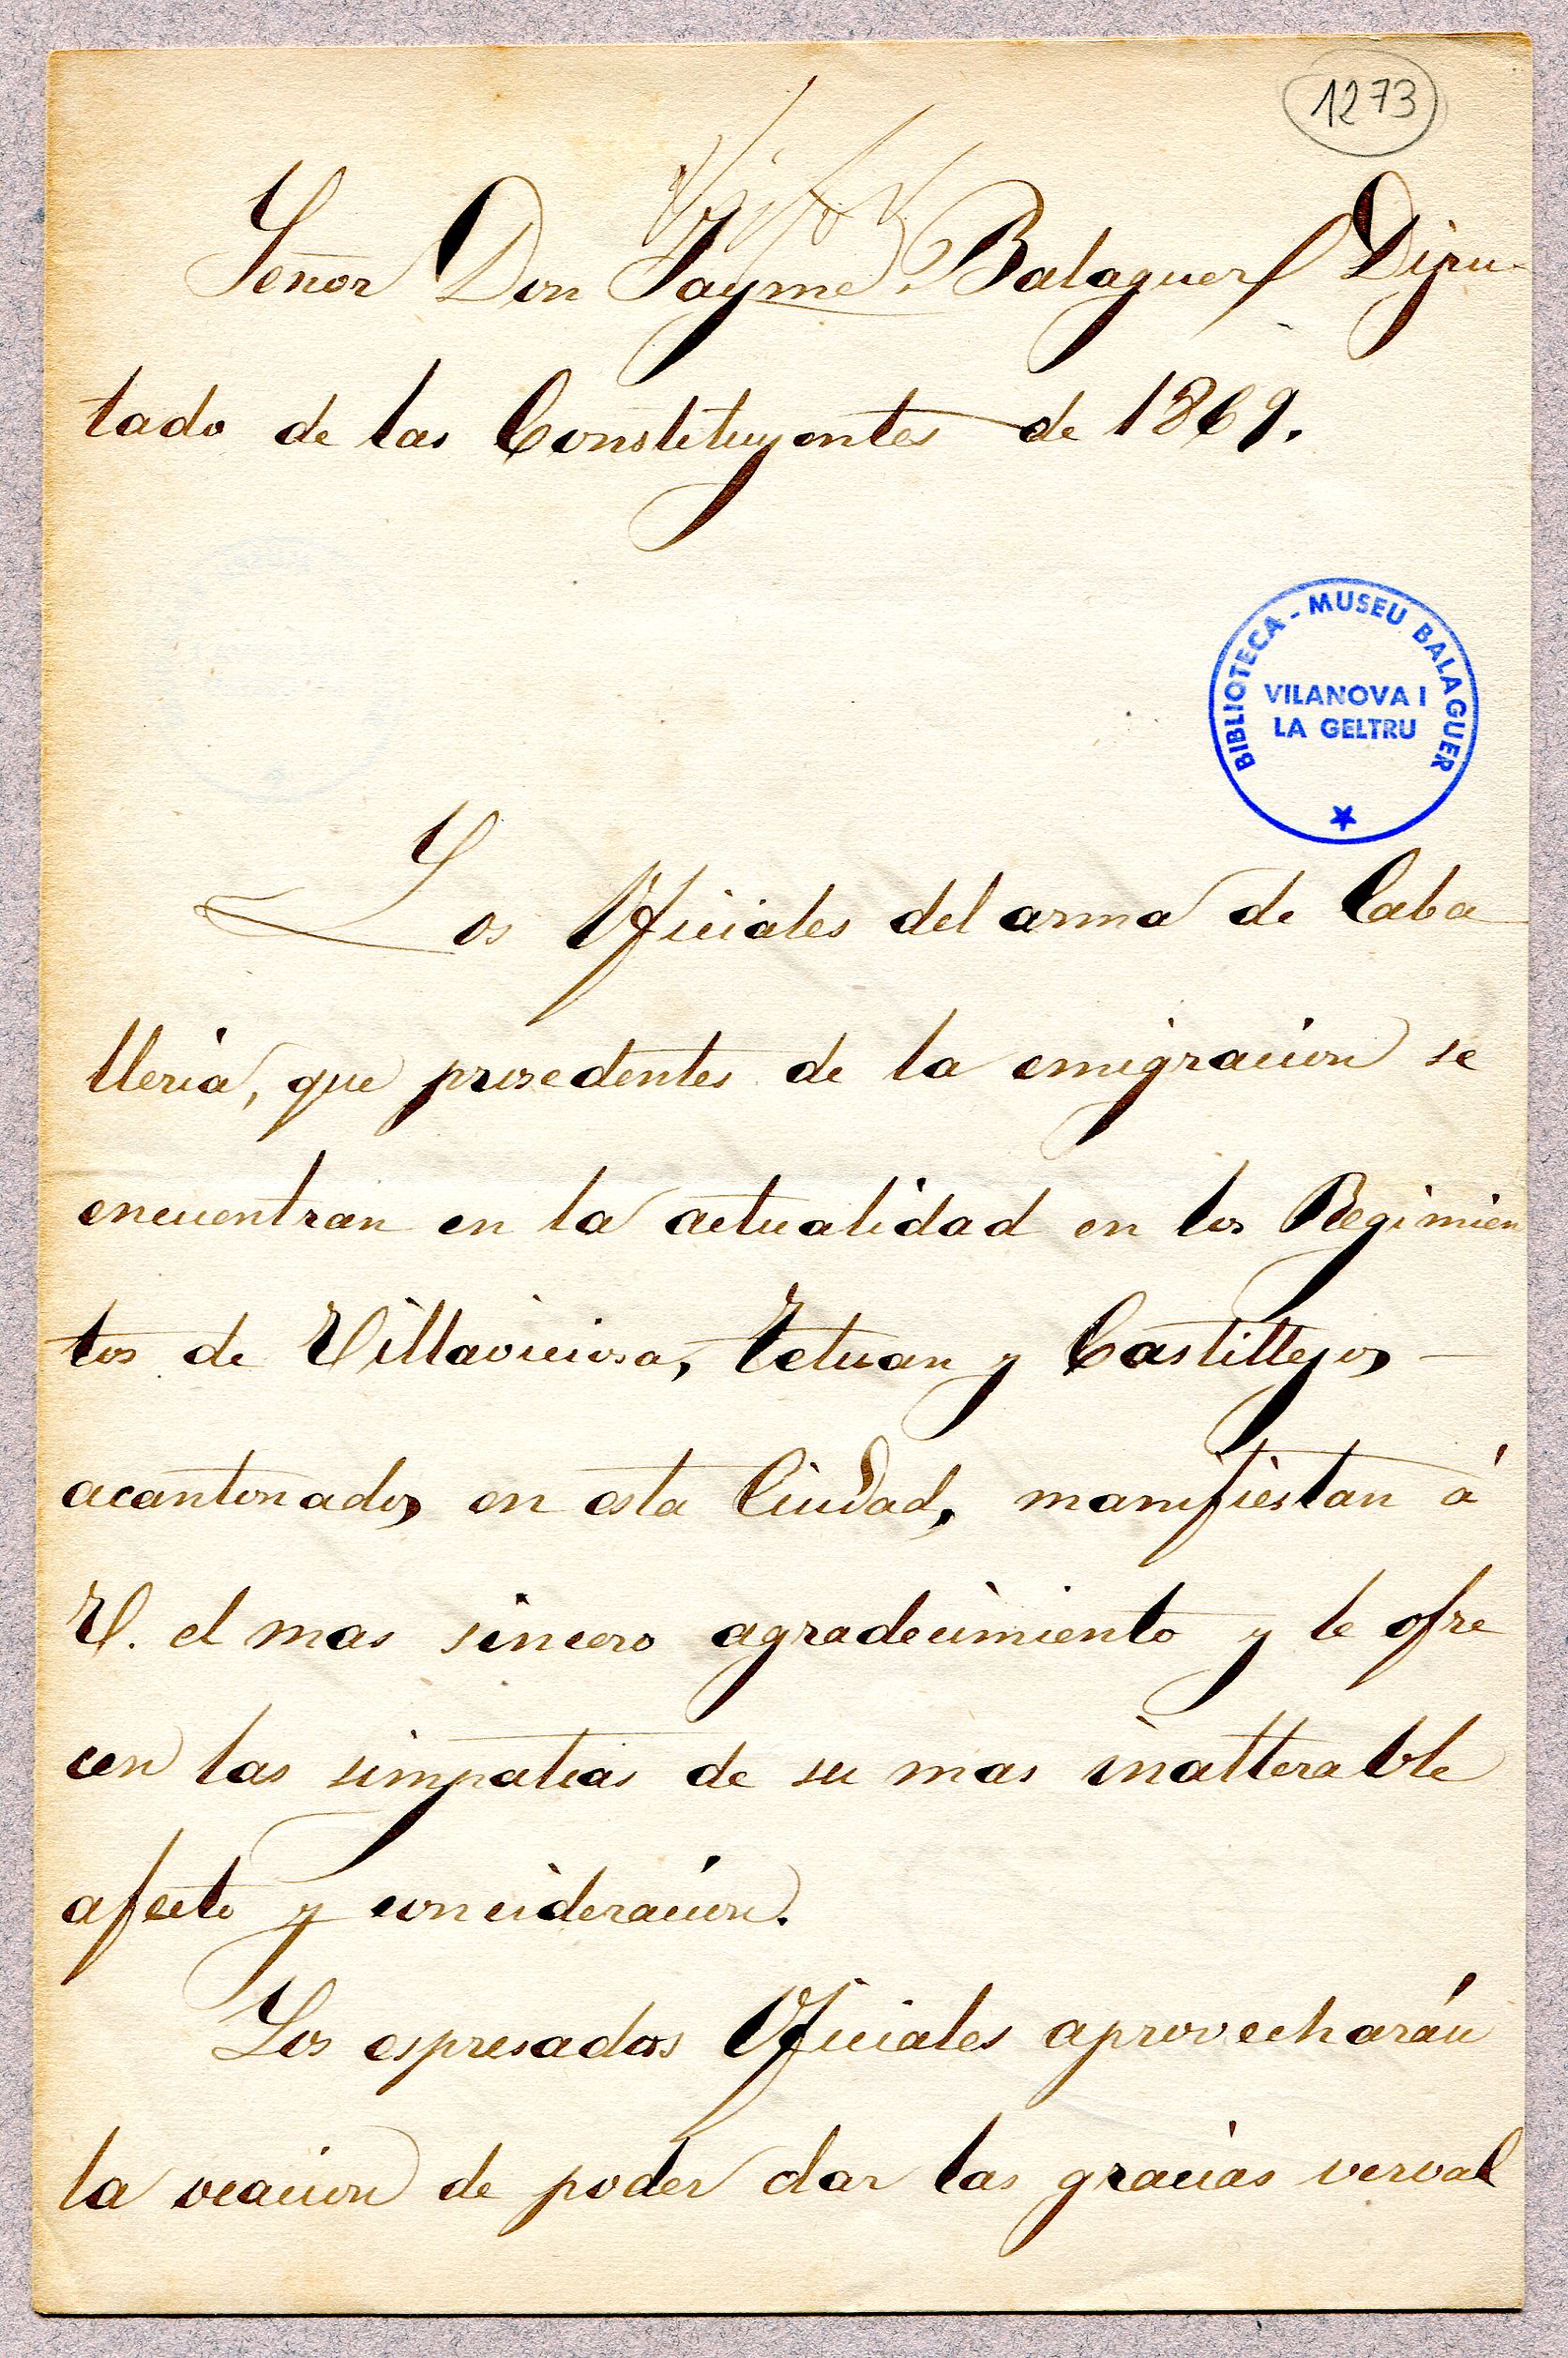 1273
Victor
Señor Don Jayme Balaguer Dipu-
tado de las Constituyentes de 1869.
BIBLIOTECA - MUSEU BALAGUER
VILANOVA I
LA GELTRU
Los Oficiales del arma de Caba
lleria, que procedentes de la emigracion se
encuentran en la actualidad en los Regimien
tos de Villaviciosa, Tetuan y Castillejos —
acantonados en esta Ciudad, manifiestan á
V. el mas sincero agradecimiento y le ofre
cen las simpatias de su mas inalterable
afecto y concideracion.
Los espresados Oficiales aprovecharán
la ocacion de poder dar las gracias verval